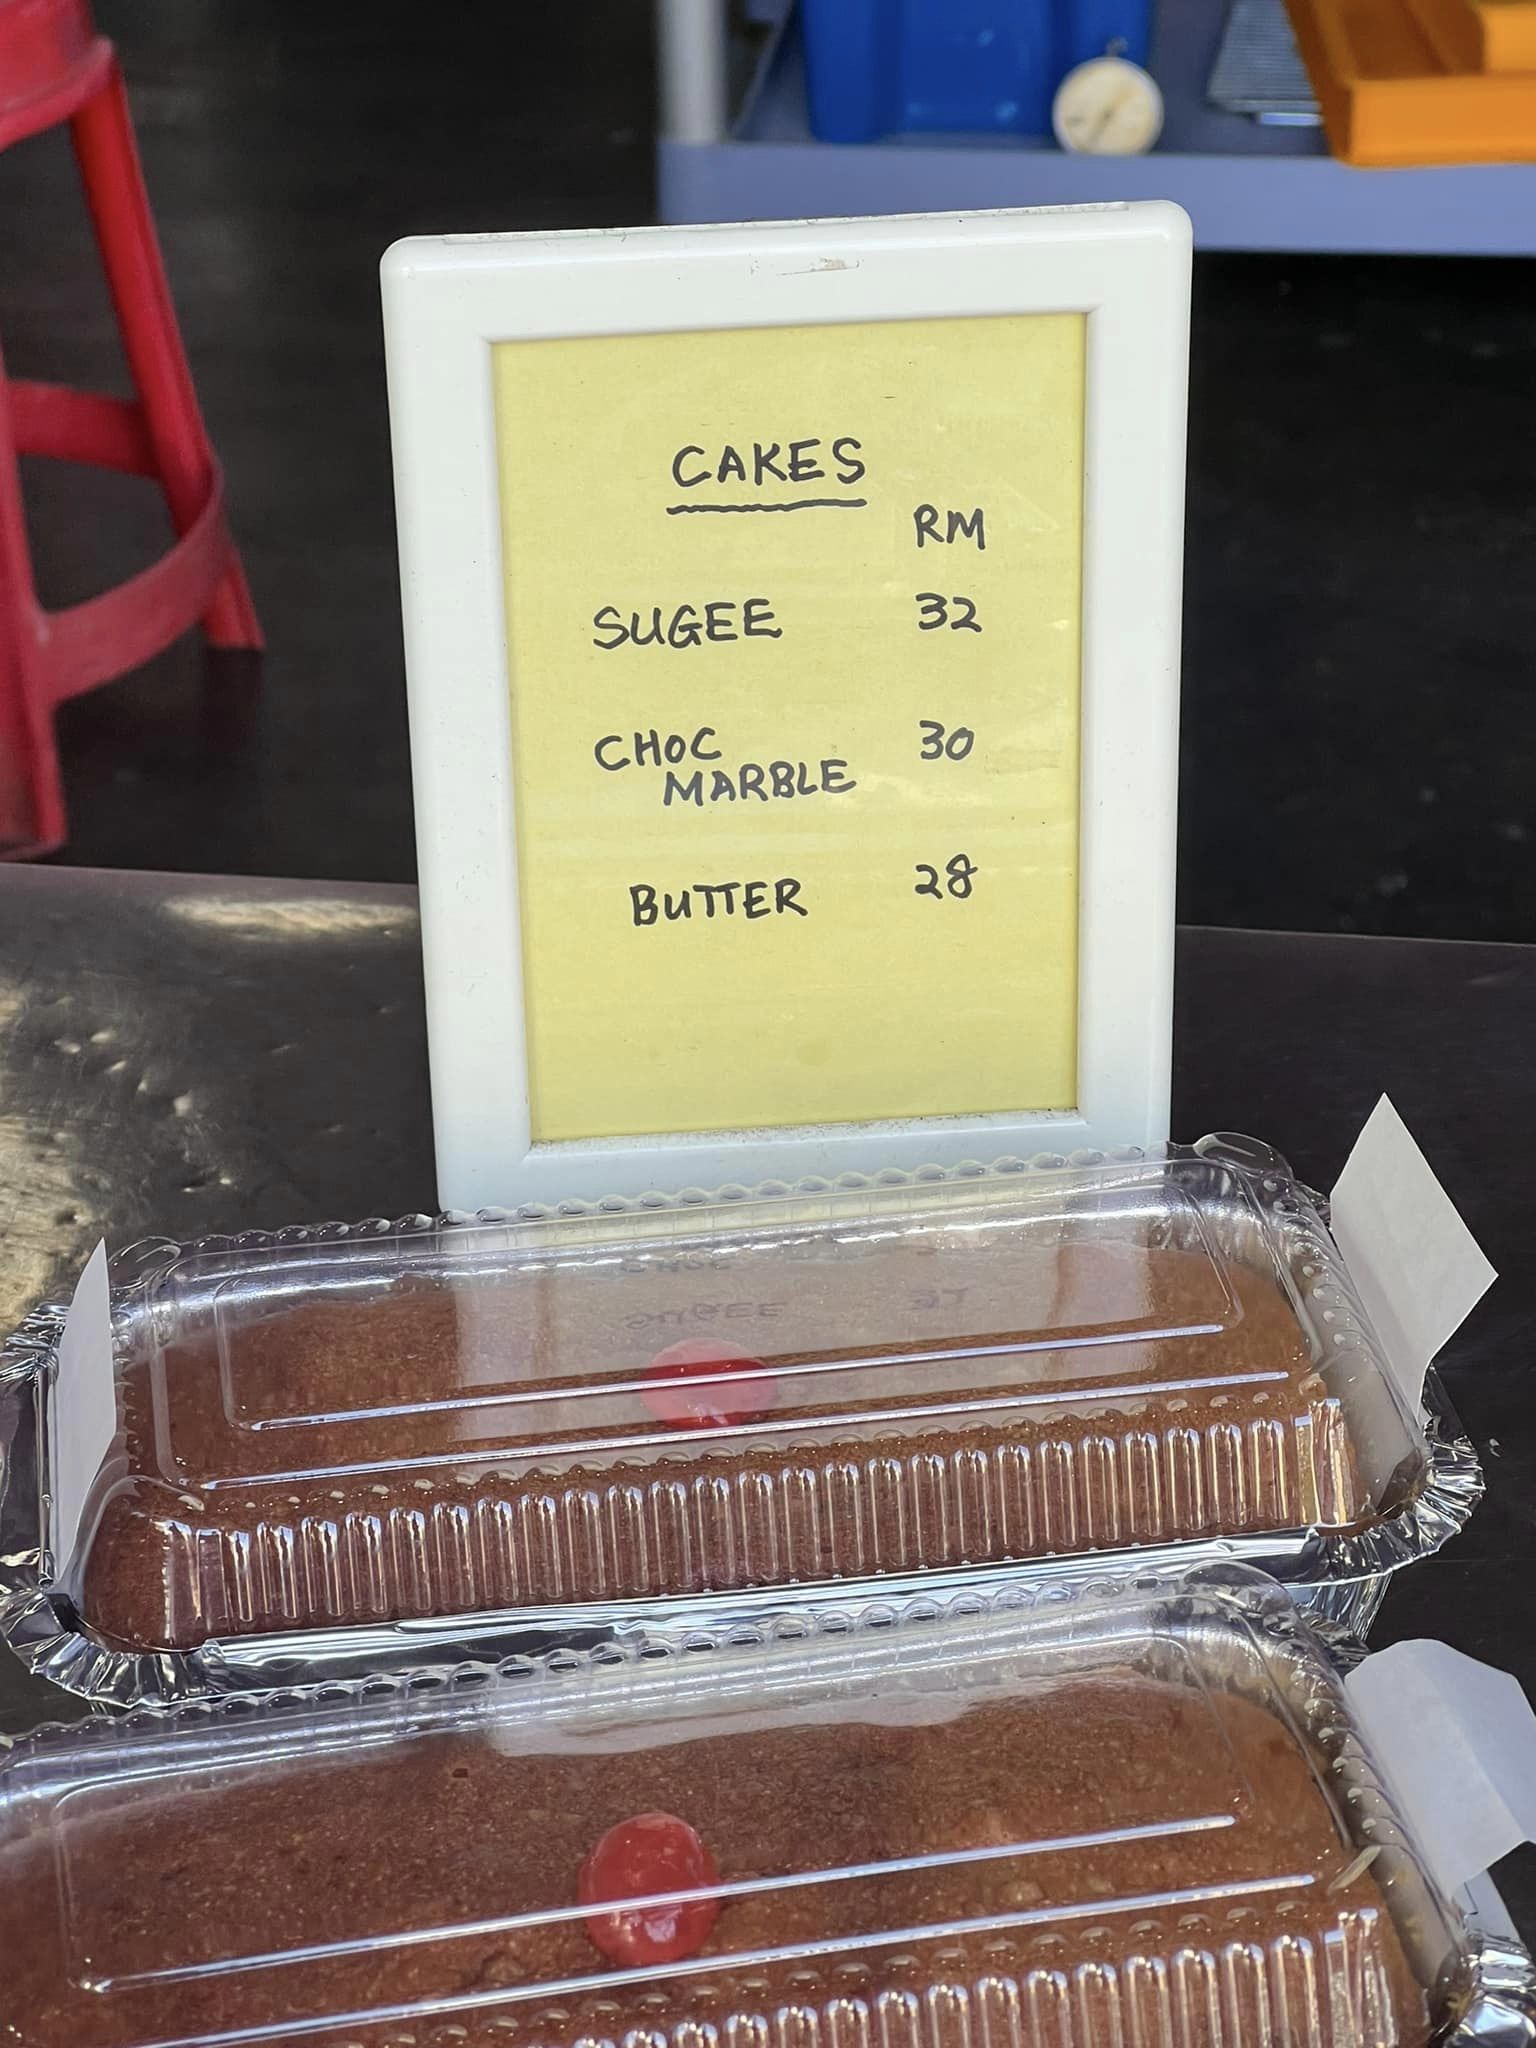 CAKES
RM
SUGEE 32
CHOC 30
MARBLE
BUTTER 28